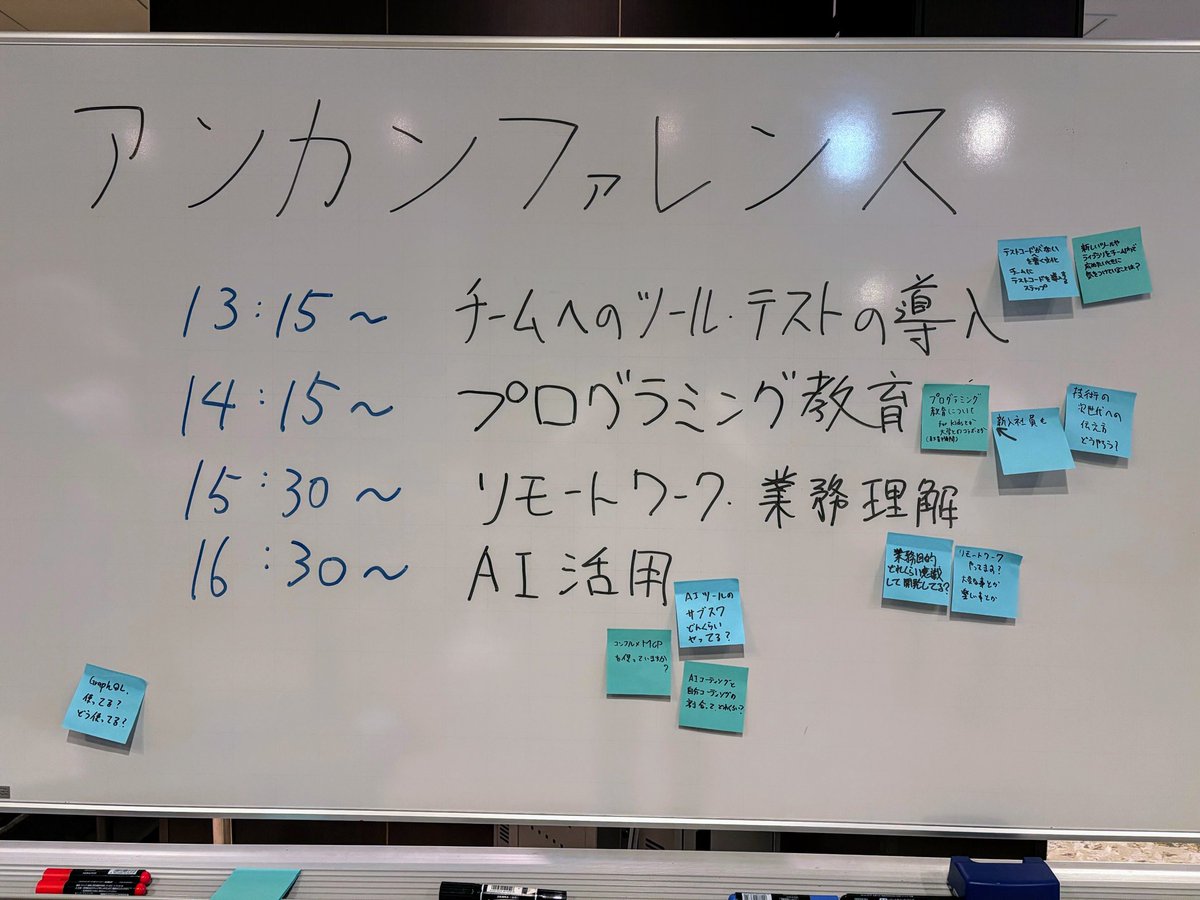 アンカンファレンス
13:15〜 チームへのツール・テストの導入
テストコードがない
を書く文化
チームに
テストコードを導入する
ステップ
新しいツールや
ライブラリをチーム内で
広めたいときに
気をつけていることは?
14:15〜 プログラミング教育
プログラミング
教育について
for kidsとか
大学とのコラボとか
新入社員も
技術の
次世代への
伝え方
どうやろう?
15:30〜 リモートワーク・業務理解
業務目的
どれくらい意識
して開発してる?
リモートワーク
やってます?
大変な事とか
楽しい事とか
16:30〜 AI活用
AIツールの
サブスク
どんくらい
やってる?
コンフルのMCP
を使っていますか
?
AIコーディングと
自分コーディングの
割合ってどれくらい?
GraphQL,
使ってる?
どう使ってる?